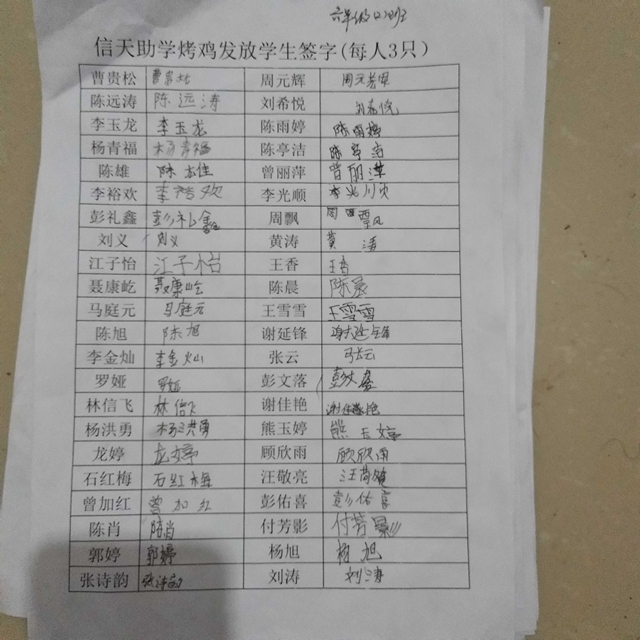 六年级(2)班
信天助学烤鸡发放学生签字(每人3只)
曹贵松 曹贵松 周元辉 周元辉
陈远涛 陈远涛 刘希悦 刘希悦
李玉龙 李玉龙 陈雨婷 陈雨婷
杨青福 杨青福 陈亭洁 陈亭洁
陈雄 陈雄 曾丽萍 曾丽萍
李裕欢 李裕欢 李光顺 李光顺
彭礼鑫 彭礼鑫 周飘 周飘
刘义 刘义 黄涛 黄涛
江子怡 江子怡 王香 王香
聂康屹 聂康屹 陈晨 陈晨
马庭元 马庭元 王雪雪 王雪雪
陈旭 陈旭 谢延锋 谢延锋
李金灿 李金灿 张云 张云
罗娅 罗娅 彭文落 彭文落
林信飞 林信飞 谢佳艳 谢佳艳
杨洪勇 杨洪勇 熊玉婷 熊玉婷
龙婷 龙婷 顾欣雨 顾欣雨
石红梅 石红梅 汪敬亮
曾加红 曾加红 彭佑喜 彭佑喜
陈肖 陈肖 付芳影 付芳影
郭婷 郭婷 杨旭 杨旭
张诗韵 张诗韵 刘涛 刘涛